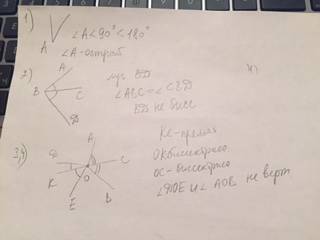 1)
A
∠A<90°<180°
∠A-острый
2)
A
B
C
D
луч BD
∠ABC=∠CBD
BD не бисс
4)
3,4)
A
D
C
K
O
E
B
KC-прямая
OK биссектриса
OC-биссектриса
∠DOE и ∠AOB не верт